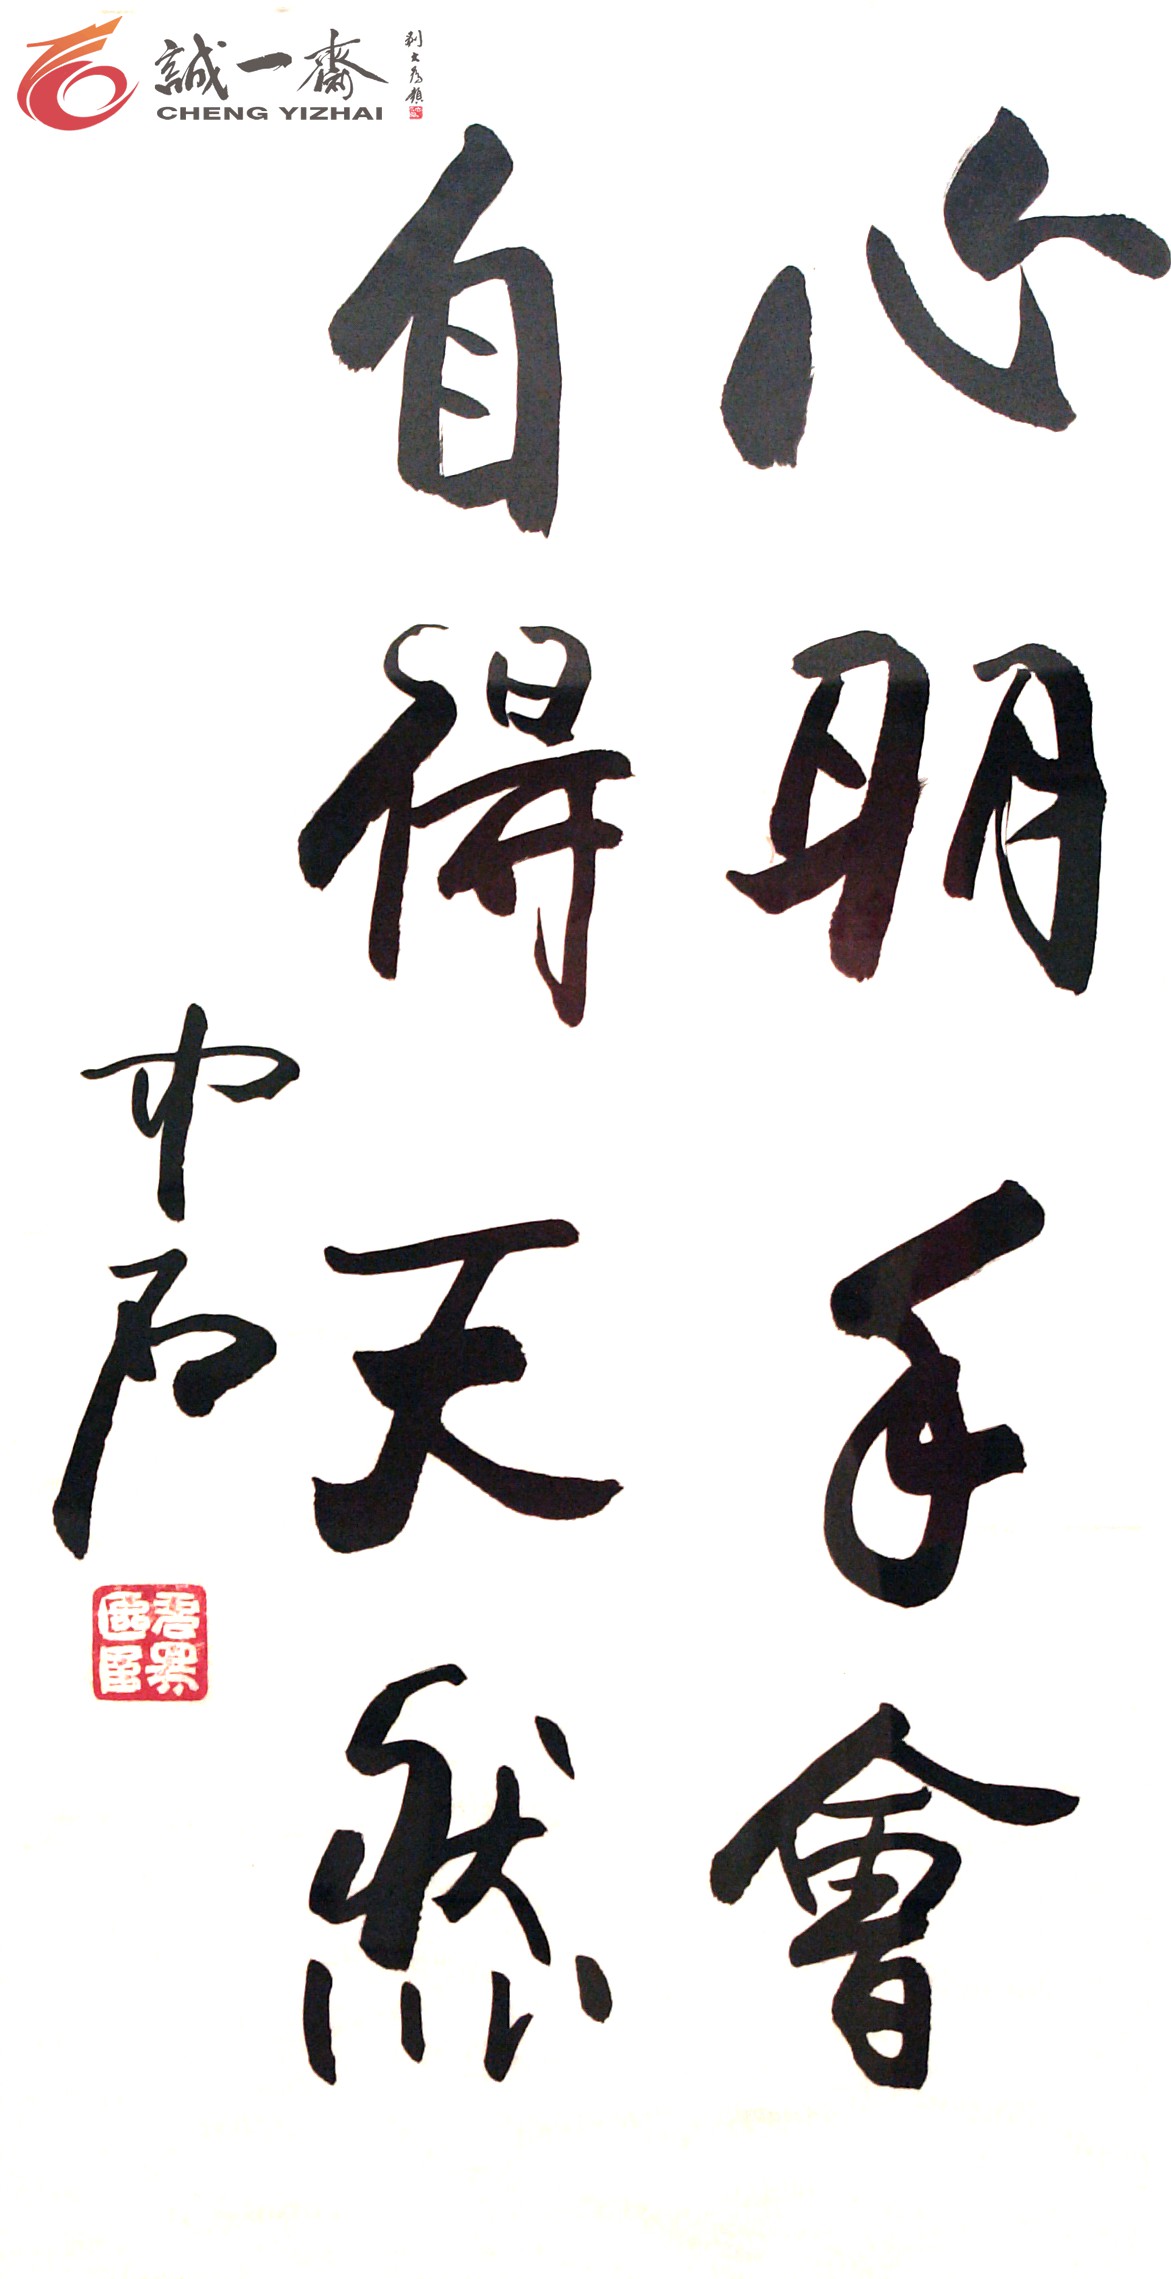 誠一齋
CHENG YIZHAI
心明手會
自得天然
中石